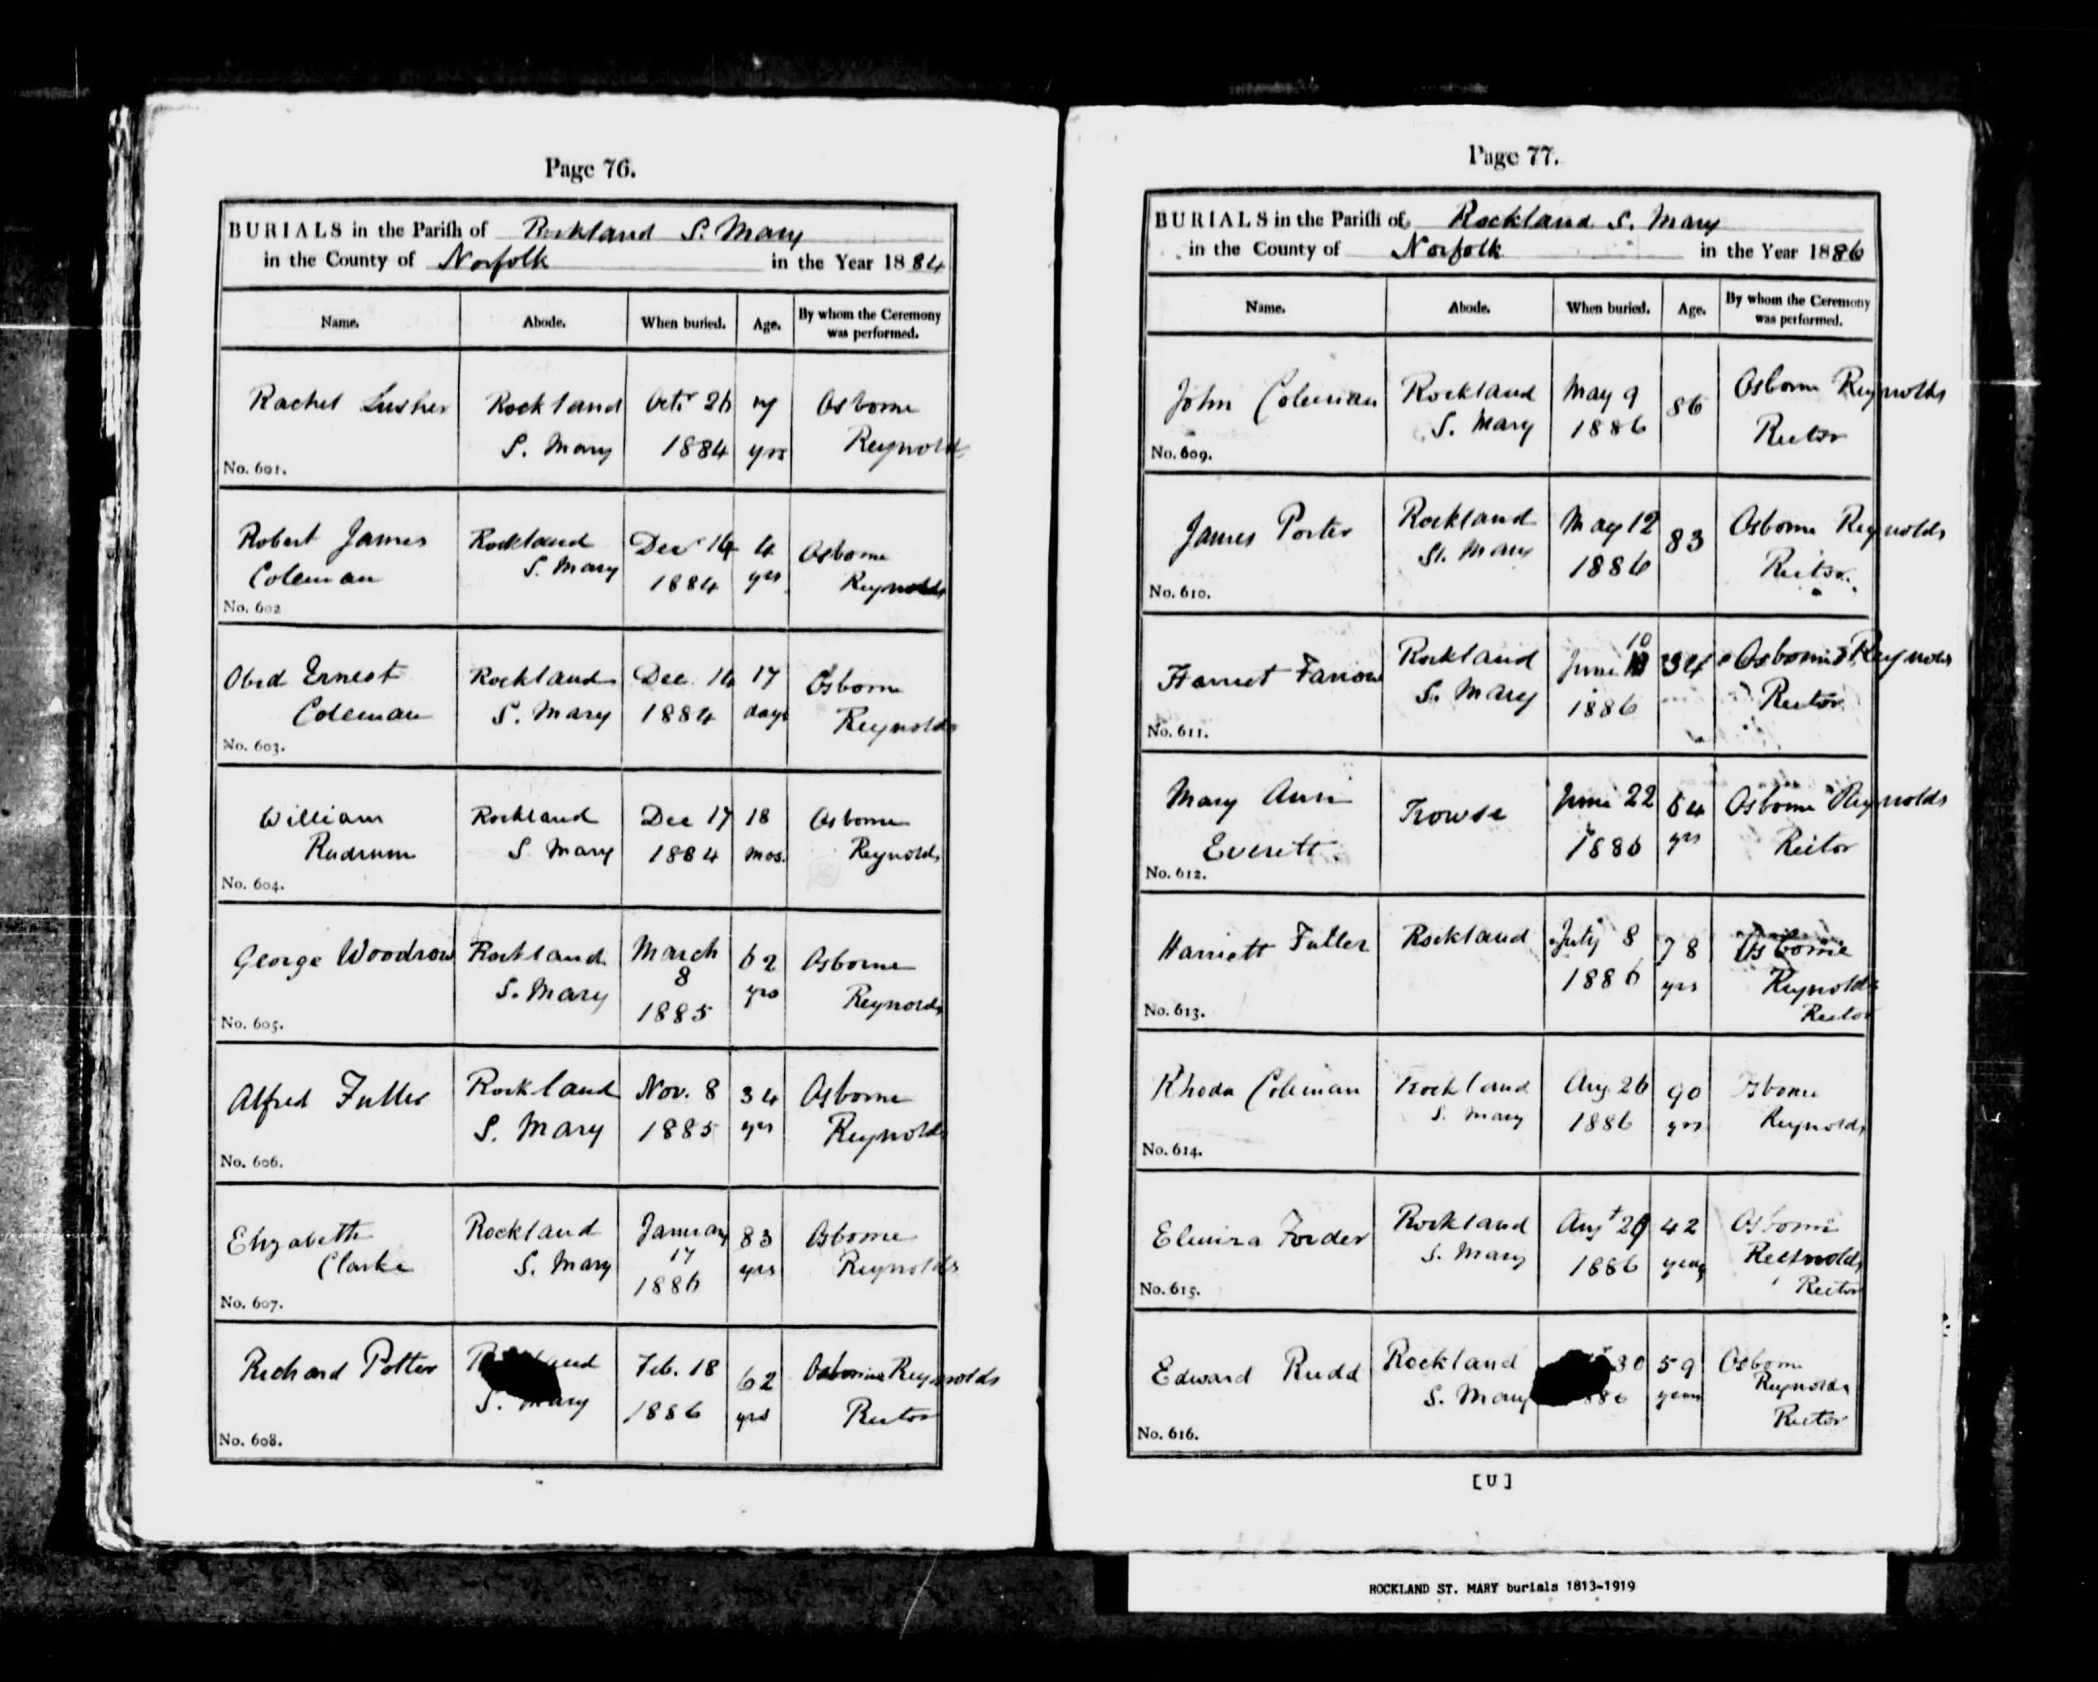 Page 76.
BURIALS in the Parish of Rockland S. Mary
in the County of Norfolk in the Year 1884
Name. Abode. When buried. Age. By whom the Ceremony was performed.
Rachel Lusher Rockland Octr 26 7 Osborne
S. Mary 1884 yrs Reynolds
No. 601.
Robert James Rockland Decr 14 4 Osborne
Coleman S. Mary 1884 yrs Reynolds
No. 602
Obed Ernest Rockland Dec. 14 17 Osborne
Coleman S. Mary 1884 days Reynolds
No. 603.
William Rockland Dec 17 18 Osborne
Rudrum S. Mary 1884 mos. Reynolds
No. 604.
George Woodrow Rockland March 62 Osborne
8
S. Mary 1885 yrs Reynolds
No. 605.
Alfred Fuller Rockland Nov. 8 34 Osborne
S. Mary 1885 yrs Reynolds
No. 606.
Elizabeth Rockland January 83 Osborne
17
Clarke S. Mary 1886 yrs Reynolds
No. 607.
Richard Potter Feb. 18 62 Osborne Reynolds
S. Mary 1886 yrs Rector
No. 608.
Page 77.
BURIALS in the Parish of Rockland S. Mary
in the County of Norfolk in the Year 1886
Name. Abode. When buried. Age. By whom the Ceremony was performed.
John Coleman Rockland May 9 86 Osborne Reynolds
S. Mary 1886 Rector
No. 609.
James Porter Rockland May 12 83 Osborne Reynolds
St. Mary 1886 Rector.
No. 610.
10
Harriet Farrow Rockland June 34 Osborne Reynolds
S. Mary 1886 Rector
No. 611.
Mary Ann Trowse June 22 64 Osborne Reynolds
Everett 1886 yrs Rector
No. 612.
Harriett Fuller Rockland July 8 78 Osborne
1886 yrs Reynolds
Rector
No. 613.
Rhoda Coleman Rockland Aug. 26 90 Osborne
S. Mary 1886 yrs Reynolds
No. 614.
Elmira Forder Rockland Augt 29 42 Osborne
S. Mary 1886 years Reynolds
Rector
No. 615.
Edward Rudd Rockland 30 59 Osborne
S. Mary years Reynolds
Rector
No. 616.
[U]
ROCKLAND ST. MARY burials 1813-1919